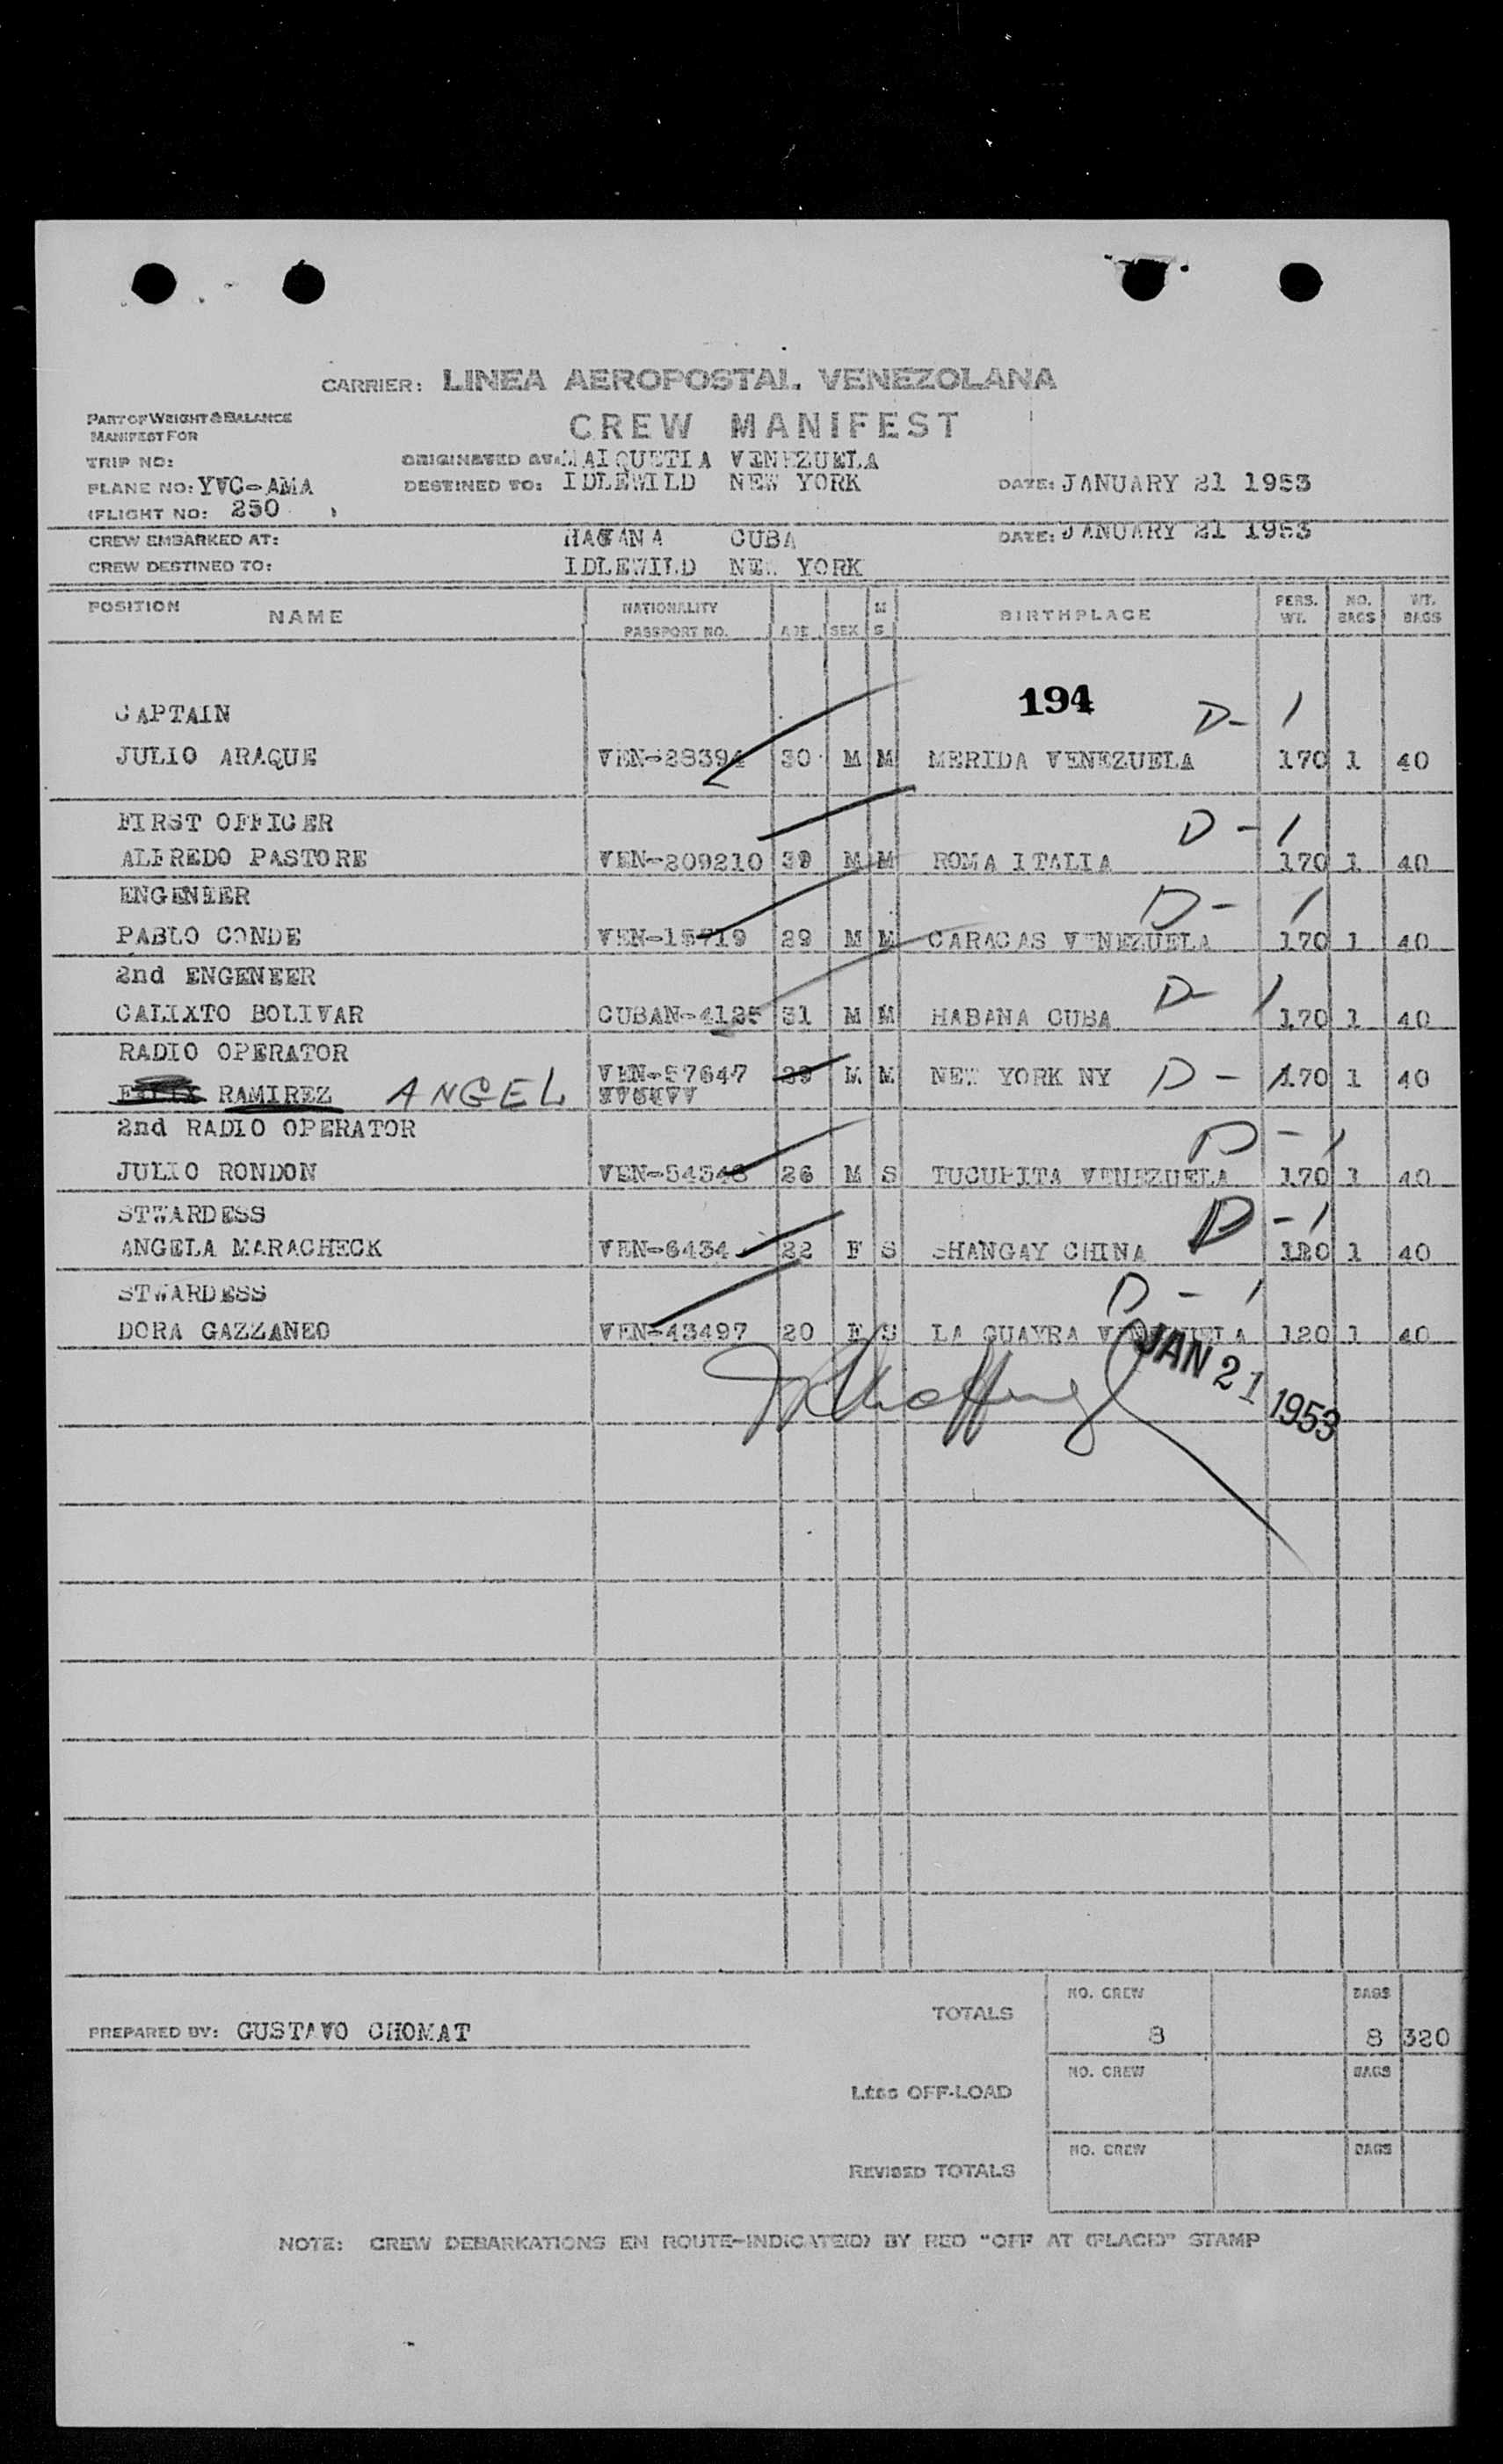 CARRIER: LINEA AEROPOSTAL VENEZOLANA
PART OF WEIGHT & BALANCE
MANIFEST FOR
CREW MANIFEST
TRIP NO:
ORIGINATED AT: MAIQUETIA VENEZUELA
PLANE NO: YVC-AMA
DESTINED TO: IDLEWILD NEW YORK
DATE: JANUARY 21 1953
FLIGHT NO: 250
CREW EMBARKED AT: HAVANA CUBA
DATE: JANUARY 21 1953
CREW DESTINED TO: IDLEWILD NEW YORK
POSITION NAME NATIONALITY PASSPORT NO. AGE SEX M S BIRTHPLACE PERS. WT. NO. BAGS WT. BAGS
194
CAPTAIN D-1
JULIO ARAQUE VEN-28394 30 M M MERIDA VENEZUELA 170 1 40
FIRST OFFICER D-1
ALFREDO PASTORE VEN-209210 39 M M ROMA ITALIA 170 1 40
ENGENIER D-1
PABLO CONDE VEN-15719 29 M M CARACAS VENEZUELA 170 1 40
2nd ENGENEER D-1
CALIXTO BOLIVAR CUBAN-4125 31 M M HABANA CUBA 170 1 40
RADIO OPERATOR
RAMIREZ ANGEL VEN-57647 39 M M NEW YORK NY D-1 170 1 40
2nd RADIO OPERATOR D-1
JULIO RONDON VEN-54348 26 M S TUCUPITA VENEZUELA 170 1 40
STWARDESS D-1
ANGELA MARACHECK VEN-6434 22 F S SHANGAY CHINA 120 1 40
STWARDESS D-1
DORA GAZZANEO VEN-43497 20 F S LA GUAYRA VENEZUELA 120 1 40
JAN 21 1953
TOTALS NO. CREW 8 BAGS 8 320
PREPARED BY: GUSTAVO CHOMAT
LESS OFF-LOAD NO. CREW BAGS
REVISED TOTALS NO. CREW BAGS
NOTE: CREW DEBARKATIONS EN ROUTE-INDICATE(D) BY RED "OFF AT (PLACE)" STAMP